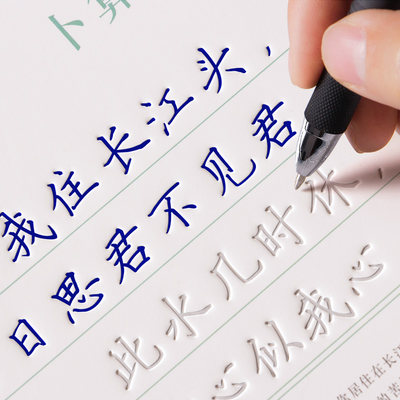 卜算
我住长江头，
日思君不见君
此水几时休，
心似我心
居住在长江
的苦